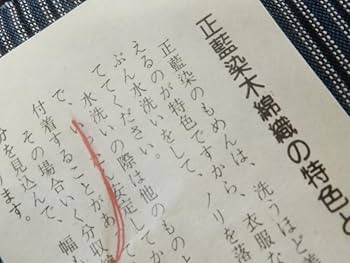 正藍染木綿織の特色と
正藍染のもめんは、洗うほど
えるのが特色ですから、衣服な
ぶん水洗いをして、ノリを落
てください。
水洗いの際は他のもの
で、安定し
付着することがあ
その場合いく分収
分を見込んで、幅
ます。